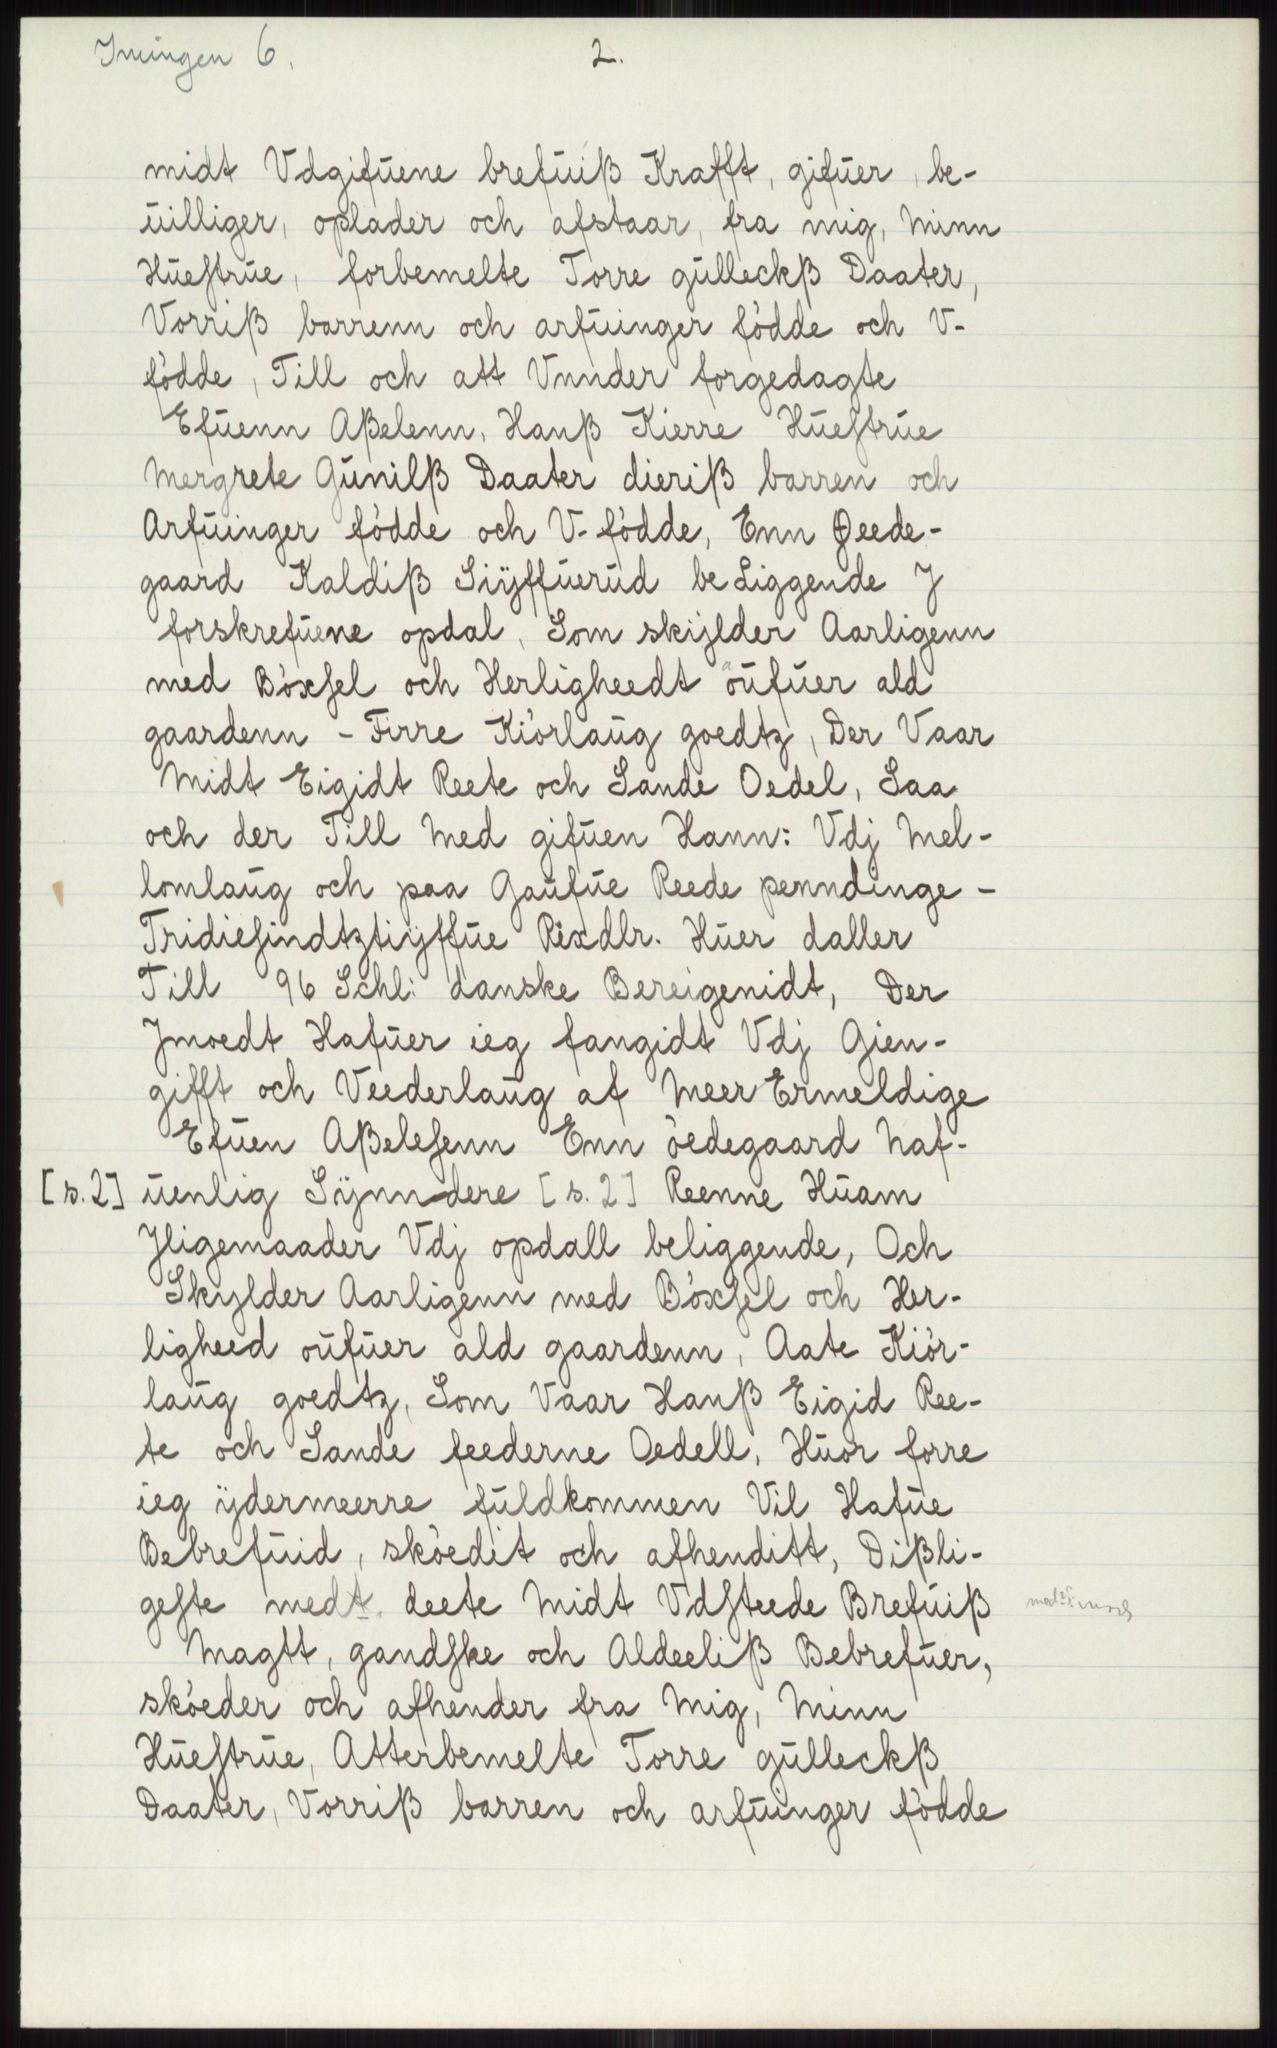 Imingen 6. 2.
midt Vdgifūene brefūiß Krafft, gifūer, be-
ūilliger, oplader och afstaar, fra mig, Minn
Hūestrūe, forbemelte Torre gūlleckß Daater,
Vorriß barrenn och arfūinger födde och V-
födde, Till och att Vnnder forgedagte
Efūenn Aßelenn, Hanß Kierre Hūestrūe
Mergrete Gūnilß Daater dieriß barren och
Arfūinger födde och V-födde, Enn Øede-
gaard Kaldiß Siÿffūerūd beLiggende J
forskrefūene opdal, Som skijlder Aarligenn
med Böxsel och Herligheedt oūfūer ald
gaardenn - Firre Kiörlaūg goedtz, Der Vaar
Midt Eigidt Reete och Sande Oedel, Saa
och der Till Med gifūen Hann: Vdj Mel-
lomlaūg och paa Gaūfūe Reede penndinge -
Tridiesindtztiÿffūe Rixdlr. Hūer daller
Till 96 Schl: danske Bereigenidt, Der
Jmoedt Hafūer ieg fangidt Vdj Gien-
gifft och Veederlaūg af Meer Ermeldige
Efūen Aßelesenn Enn öedegaard Naf-
[s.2] ūenlig Sÿnndere [s.2] Reenne Hūam
Jligemaader Vdj opdall beliggende, Och
Skylder Aarligenn med Böxsel och Her-
ligheed oūfūer ald gaardenn, Aate Kiör-
laūg goedtz, Som Vaar Hanß Eigid Ree-
te och Sande feederne Oedell, Hūor forre
ieg ÿdermeerre fūldkommen Vil Hafūe
Bebrefūid, sköedit och afhenditt, Dißli-
geste medt deete Midt Vdsteede Brefūiß
Magtt, gandske och Aldeeliß Bebrefūer,
sköeder och afhender fra Mig, Minn
Hūestrūe, Atterbemelte Torre gūlleckß
Daater, Vorriß barren och arfūinger födde